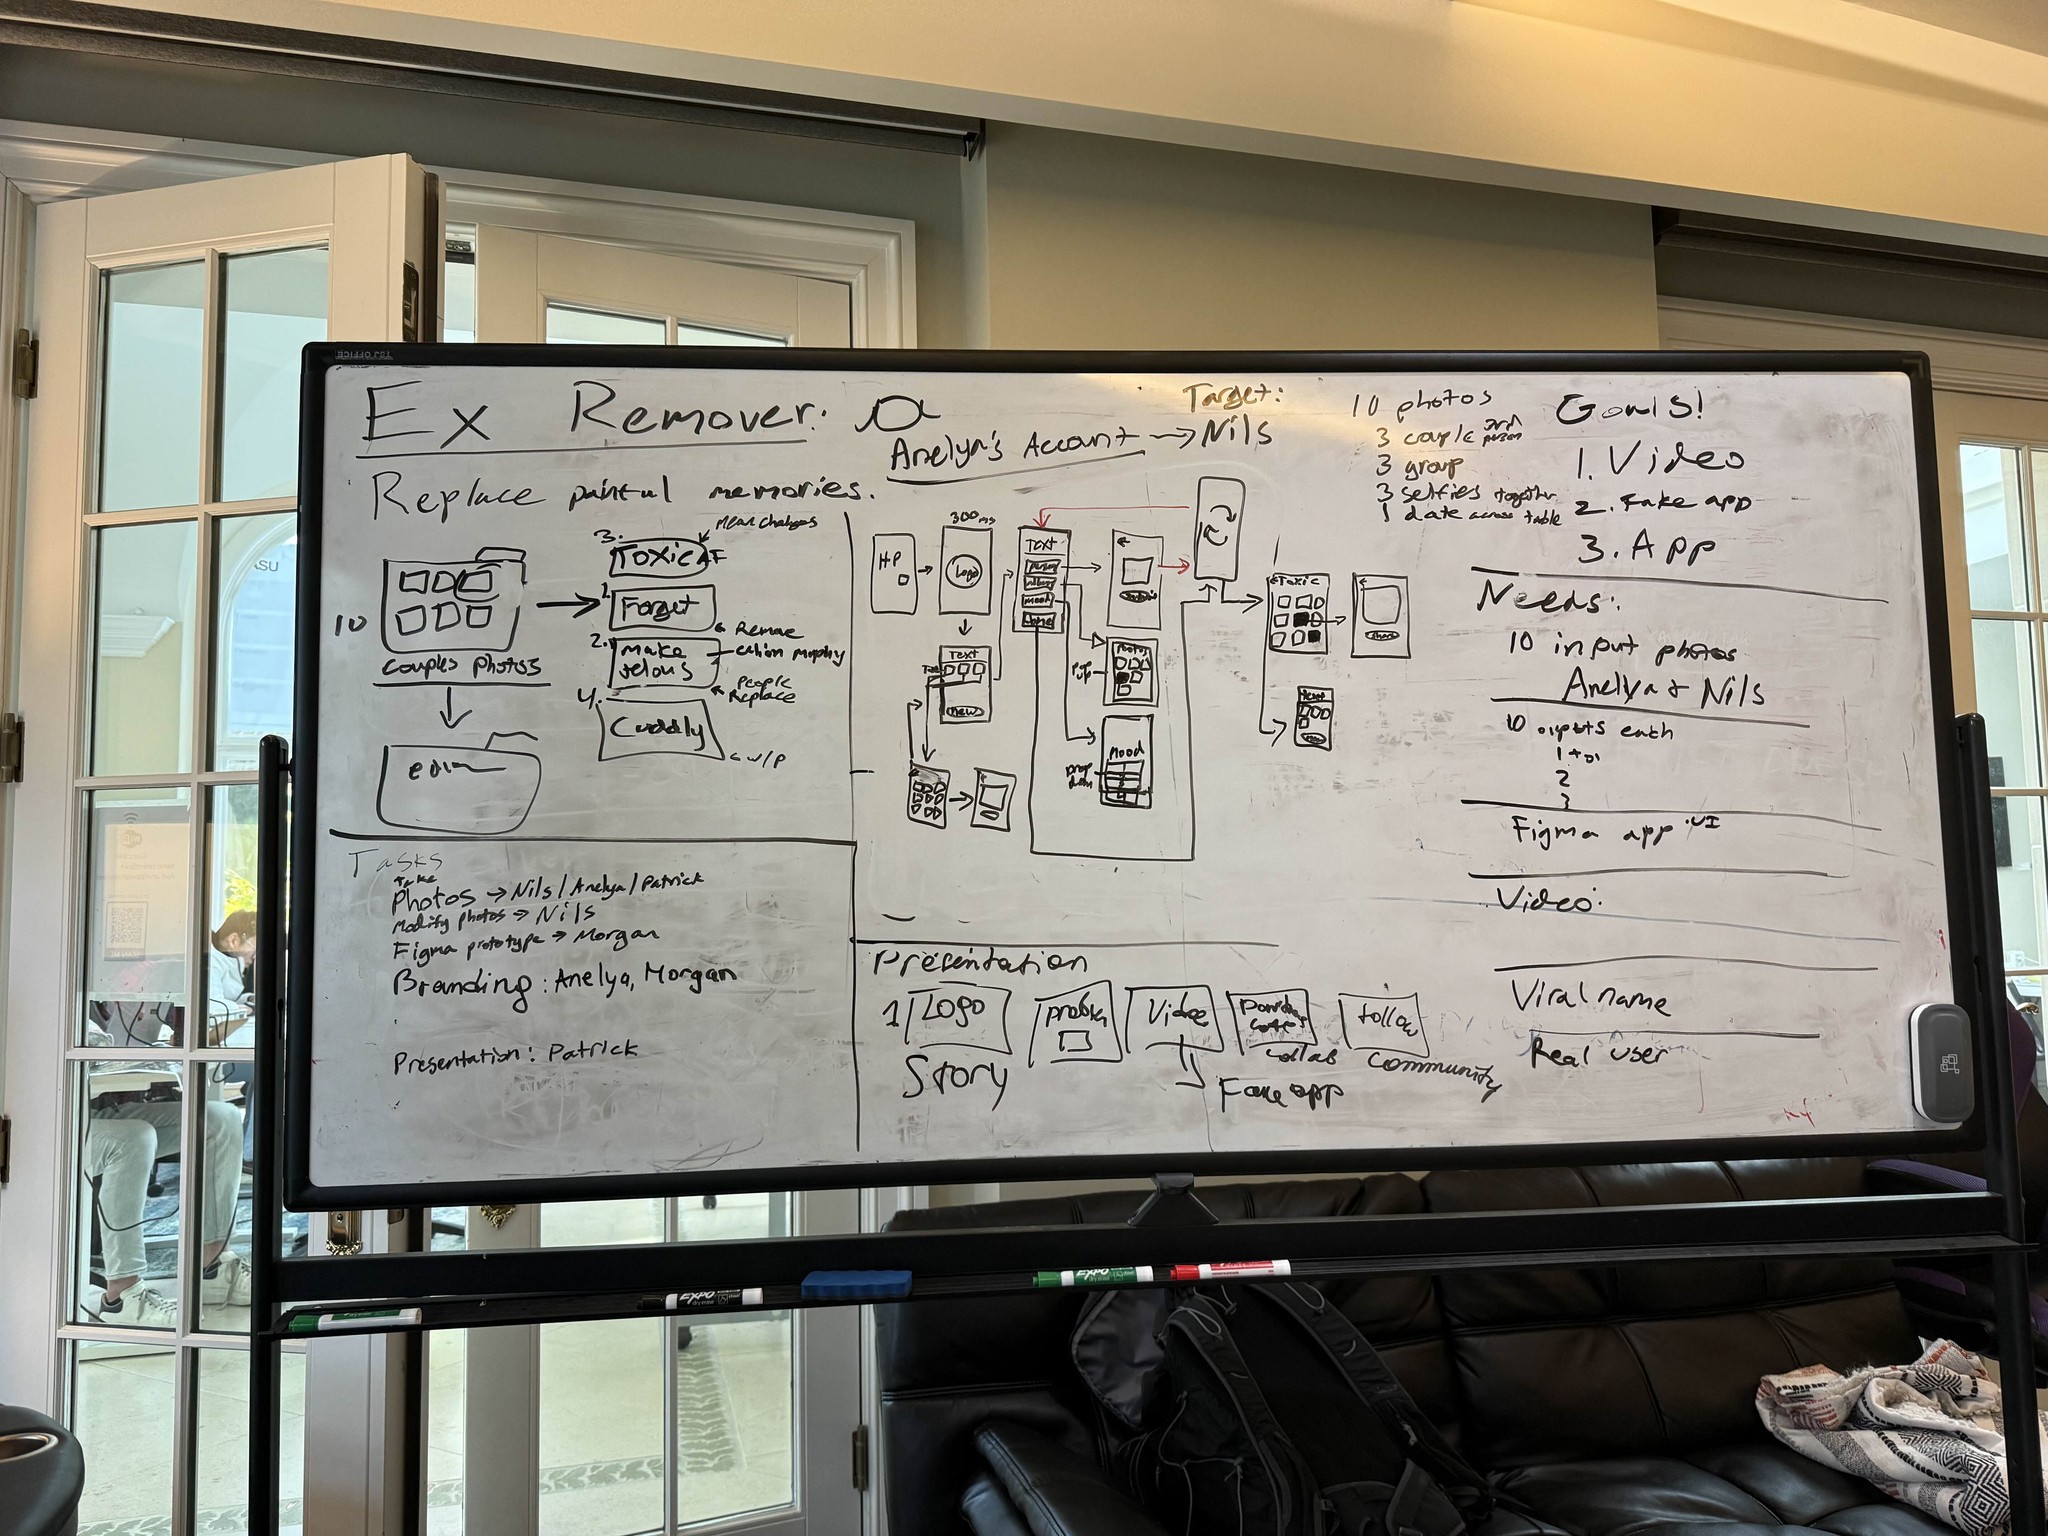 Ex Remover:
Replace painful memories.
Anelya's Account → Nils
Target:
10 photos
3 couple 3rd person
3 group
3 selfies together
1 date across table
Goals!
1. Video
2. Fake app
3. App
10
couples photos
3.
Toxic AF
Mean changes
1.
Forget
Remove
2.
make
jelous
People
Replace
4.
Cuddly
w/p
HP
300ms
Logo
Text
Text
new
Photos
Pop
up
Mood
Drop
down
Toxic
share
Needs:
10 input photos
Anelya + Nils
10 outputs each
1
2
3
Figma app UI
Video:
Viral name
Real user
Tasks
take
Photos → Nils/Anelya/Patrick
Modify photos → Nils
Figma prototype → Morgan
Branding: Anelya, Morgan
Presentation: Patrick
Presentation
1
Logo
Video
follow
Story
Fake app
collab
community
EXPO
EXPO